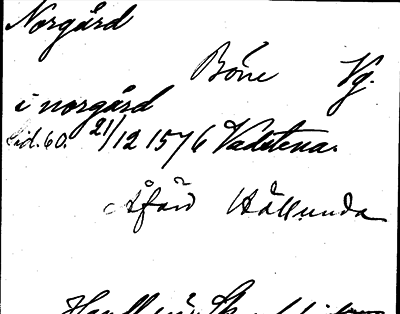 Norgård
Böne Vg.
i norgård
Sid. 60. 21/12 1576 Vadstena.
Åsärd Hällunda